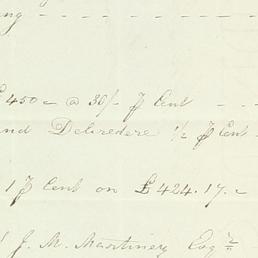 £450 @ 30/- ⅌ Cent
and Delcredere 1/2 ⅌ Cent
1 ⅌ Cent on £424.17.
J. M. Martinez Esqre